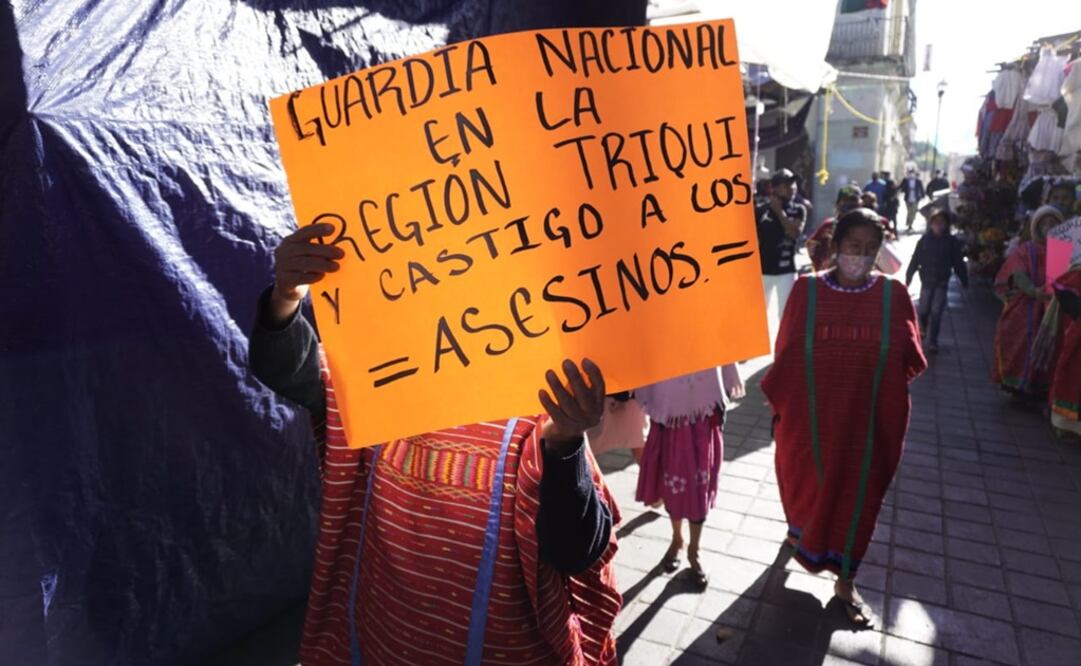 GUARDIA NACIONAL
EN LA
REGIÓN TRIQUI
Y CASTIGO A LOS
= ASESINOS. =